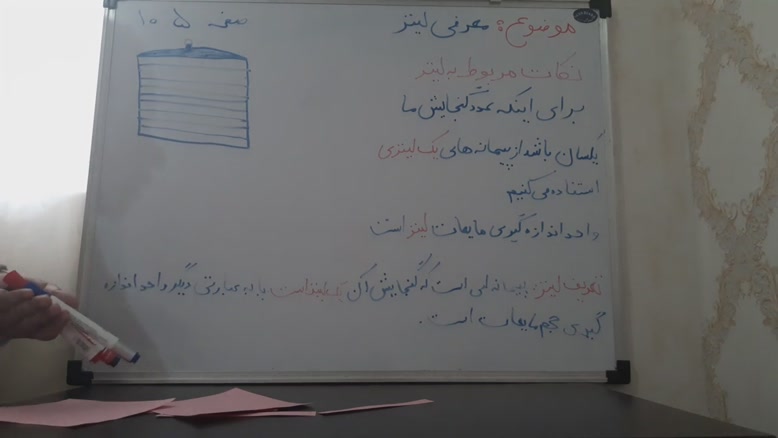 موضوع: معرفی لیتر
صفحه ۱۰۵
نکات مربوط به لیتر
برای اینکه گنجایش ما
یکسان باشد از پیمانه های یک لیتری
استفاده می کنیم
واحد اندازه گیری مایعات لیتر است
تعریف لیتر: پیمانه ای است که گنجایش آن یک لیتر است یا به عبارتی دیگر واحد اندازه
گیری حجم مایعات است.